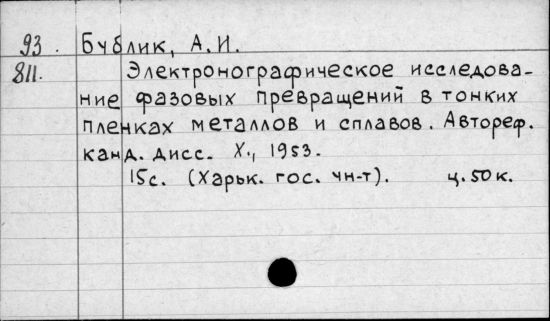 93. Бублик, А.И.
811. Электронографическое исследова-
ние фазовых превращений в тонких
пленках металлов и сплавов. Автореф.
канд. дисс. Х., 1953.
15с. (Харьк. гос. ун-т). ц. 50к.